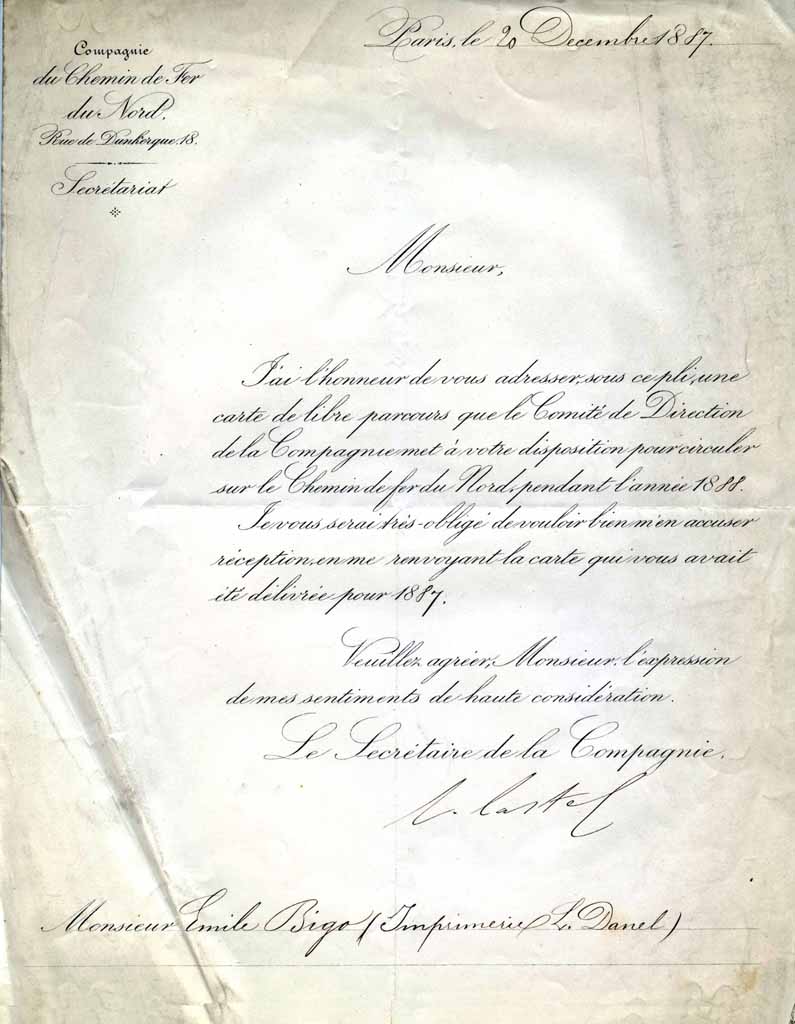 Paris, le 20 Decembre 1887.
Compagnie
du Chemin de Fer
du Nord.
Rue de Dunkerque. 18.
Secrétariat
Monsieur,
J'ai l'honneur de vous adresser, sous ce pli, une
carte de libre parcours que le Comité de Direction
de la Compagnie met à votre disposition pour circuler
sur le Chemin de fer du Nord, pendant l'année 1888.
Je vous serai très-obligé de vouloir bien m'en accuser
réception, en me renvoyant la carte qui vous avait
été délivrée pour 1887.
Veuillez agréer, Monsieur, l'expression
de mes sentiments de haute considération.
Le Secrétaire de la Compagnie.
Castel
Monsieur Emile Bigo (Imprimerie L. Danel)